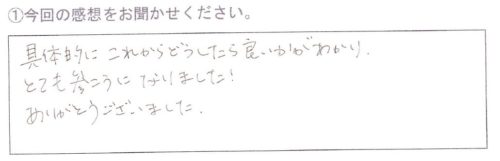 ①今回の感想をお聞かせください。
具体的に これからどうしたら良いかがわかり.
とても参こうに なりました!
ありがとうございました.